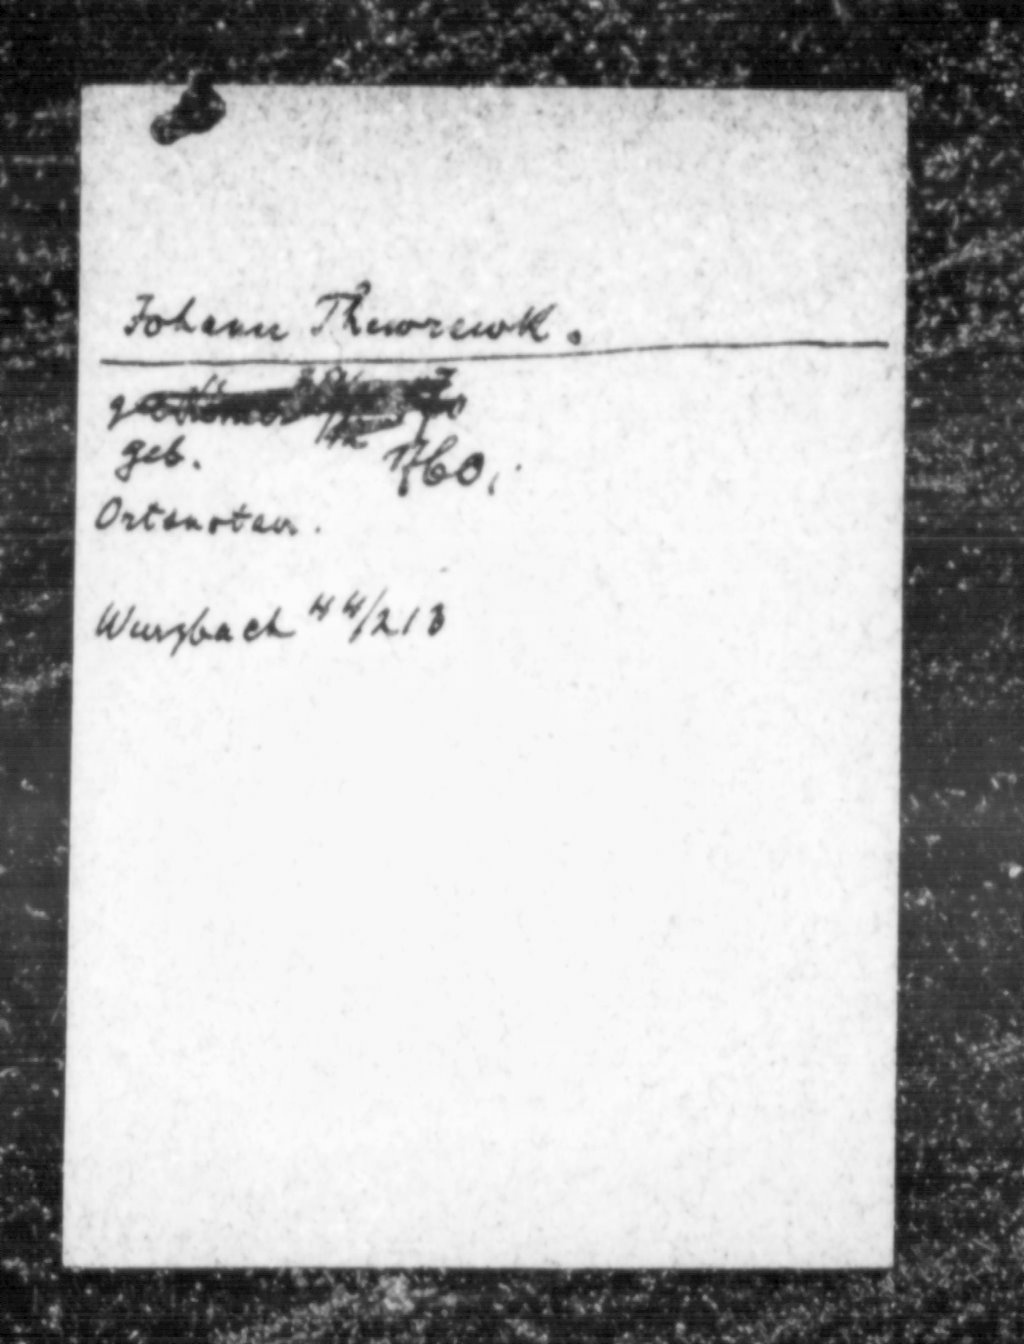 Johann Thewrewk.
geb. 1760.
Ortsnotar.
Wurzbach 44/213